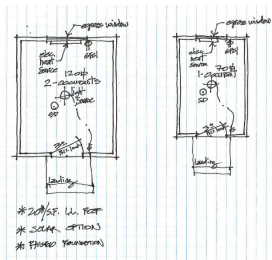 egress window
elec.
heat
source
GFCI
120ф
2-occupants
light
source
SD
Landing
egress window
elec.
heat
source
GFCI
70ф
1-occupant
SD
Landing
* 20#/S.F. LL ROOF
* SOLAR OPTION
* FINISHED FOUNDATION